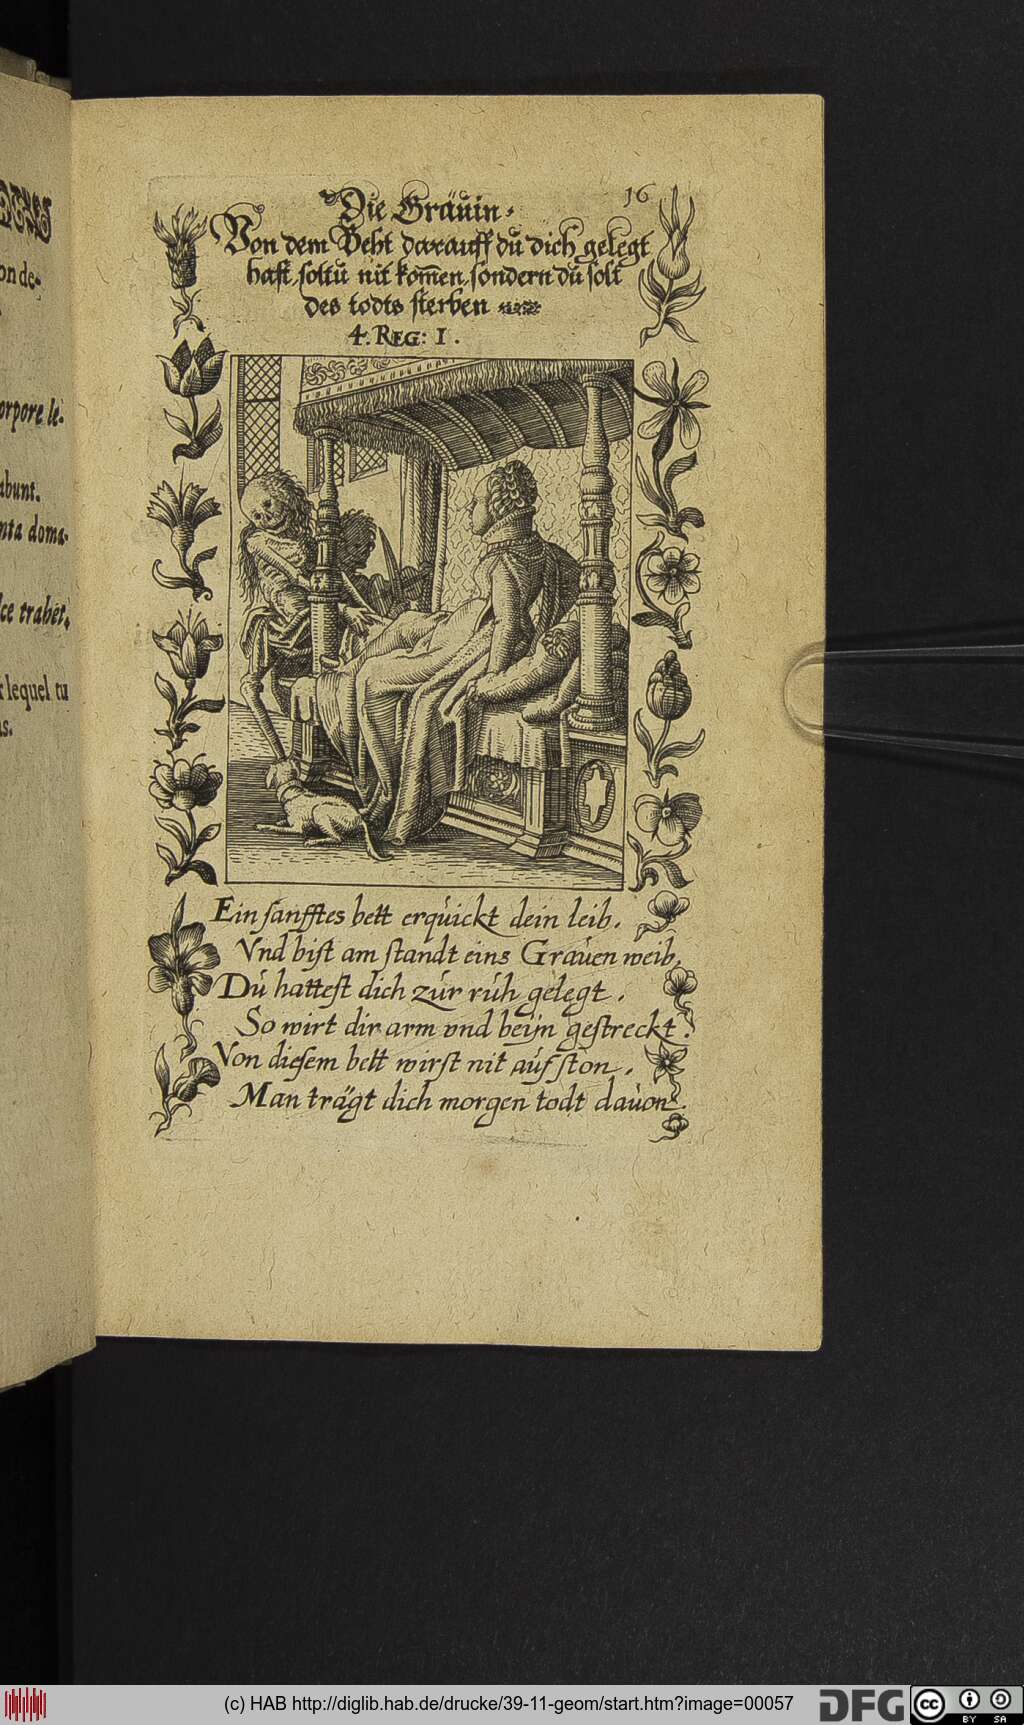 on de-
orpore le-
abunt.
nta doma-
ce trahet.
r lequel tu
16
Die Gräuin.
Von dem Beht darauff du dich gelegt
hast, soltu nit kom̄en, sondern du solt
des todts sterben
4. REG: I.
Ein sanfftes bett erquickt dein leib.
Vnd bist am standt eins Grauen weib.
Du hattest dich zur ruh gelegt.
So wirt dir arm vnd beyn gestreckt.
Von diesem bett wirst nit aufston.
Man trägt dich morgen todt dauon.
(c) HAB http://diglib.hab.de/drucke/39-11-geom/start.htm?image=00057
DFG
cc BY SA